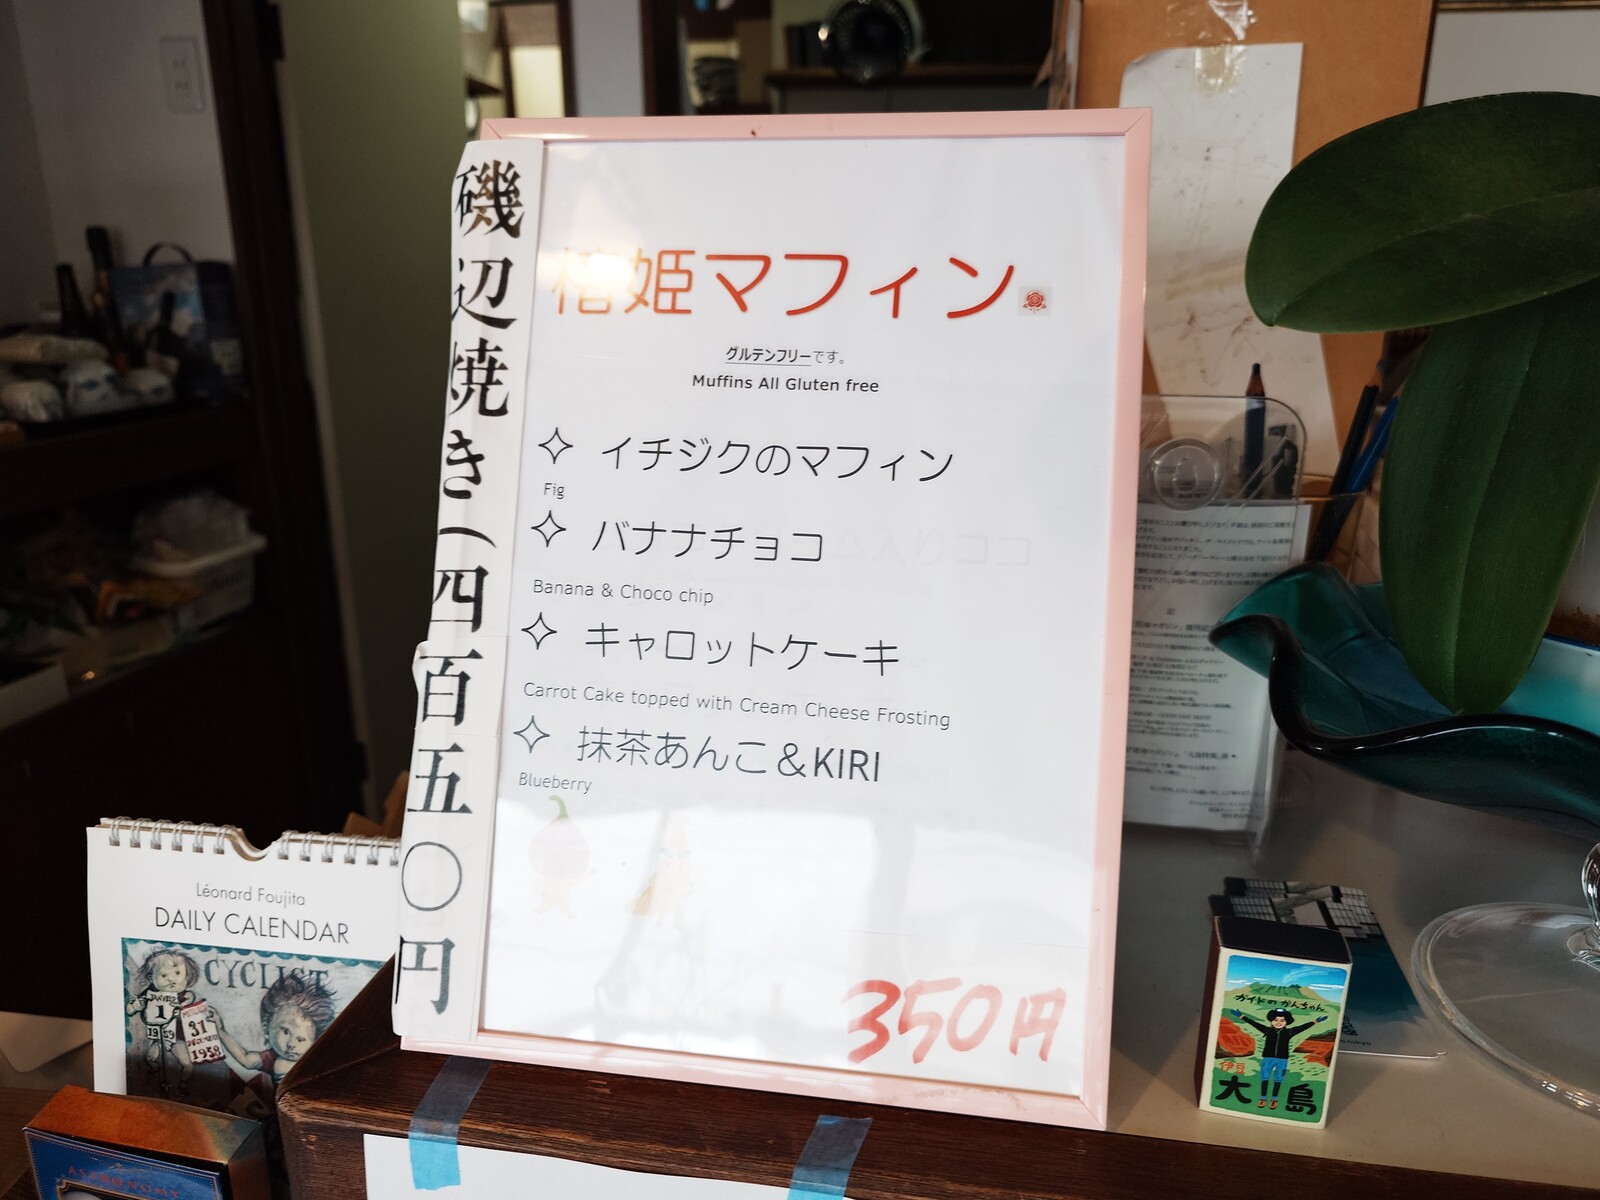 磯辺焼き(四百五〇円
椿姫マフィン
グルテンフリーです。
Muffins All Gluten free
イチジクのマフィン
Fig
バナナチョコ
Banana & Choco chip
キャロットケーキ
Carrot Cake topped with Cream Cheese Frosting
抹茶あんこ&KIRI
Blueberry
350円
Léonard Foujita
DAILY CALENDAR
CYCLIST
1
31
1958
ASTRONOMY
ガイドのかんちゃん
伊豆
大島
記